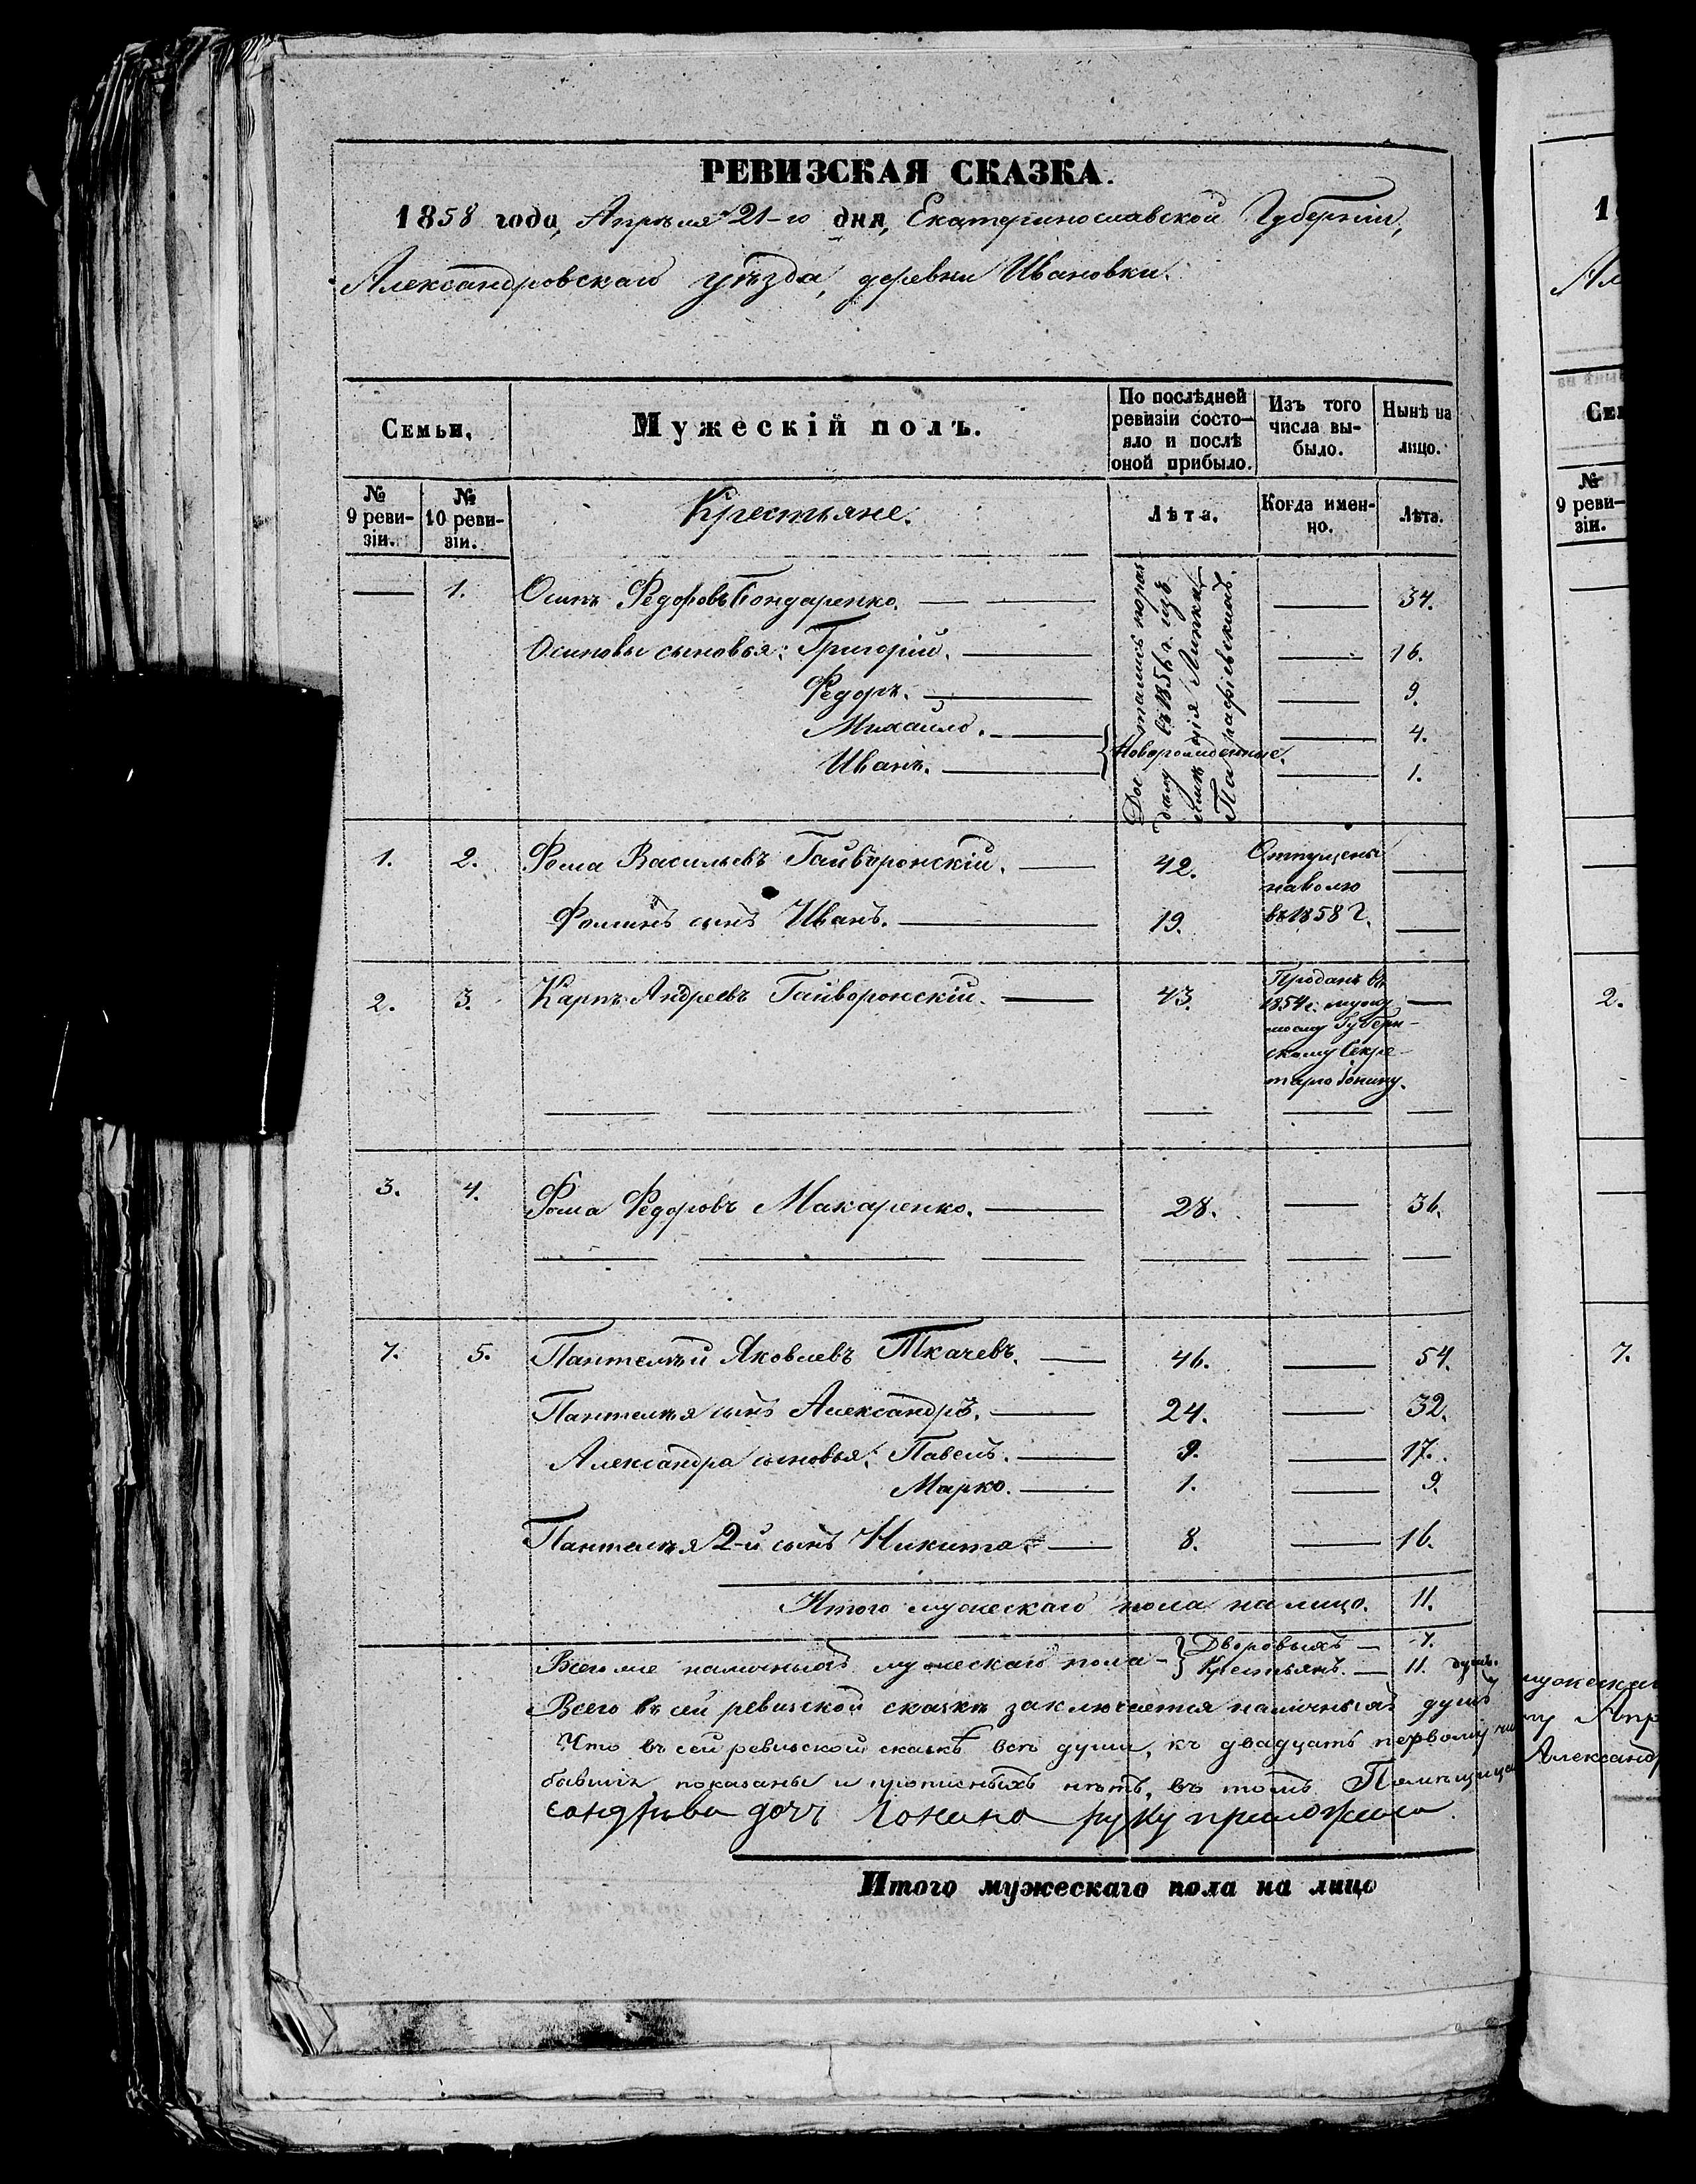 РЕВИЗСКАЯ СКАЗКА.
1858 года, Апрѣля 21-го дня, Екатеринославской Губерніи,
Александровскаго уѣзда, деревни Ивановки.
Семьи,
Мужескій полъ.
По послѣдней ревизіи состояло и послѣ оной прибыло.
Изъ того числа выбыло.
Нынѣ на лицо.
№ 9 ревизіи.
№ 10 ревизіи.
Крестьяне.
Лѣта.
Когда именно.
Лѣта.
— 1. Осипъ Федоровъ Бондаренко. — — 34.
Осиповы сыновья: Григорій. — — 16.
Федоръ. — — 9.
Михайло. — — 4.
Иванъ. — — 1.
Новорожденные.
въ 1856 г. изъ
1. 2. Фома Васильевъ Гайворонскій. — 42. Отпущены —
наволю
Фоминъ сынъ Иванъ. — 19. въ 1858 г. —
2. 3. Карпъ Андреевъ Гайворонскій. — 43. Проданъ въ —
1854 г. мужу
моему Губерн-
скому Секре-
тарю
3. 4. Фома Федоровъ Макаренко. — 28. — 36.
7. 5. Пантелѣй Яковлевъ Ткачевъ. — 46. — 54.
Пантелѣя сынъ Александръ. — 24. — 32.
Александра сыновья: Павелъ. — 9. — 17.
Марко. — 1. — 9.
Пантелѣя 2-й сынъ Никита. — 8. — 16.
Итого мужескаго пола на лицо. 11.
Всего же наличныхъ мужескаго пола — { Дворовыхъ — 7.
Крестьянъ. — 11. душъ.
Всего въ сей ревизской сказкѣ заключается наличныхъ душъ
Что въ сей ревизской сказкѣ всѣ души, къ двадцать первому
показаны и прописныхъ нѣтъ, въ томъ
дочь руку приложила.
Итого мужескаго пола на лицо
1
Се
№ 9 ревизіи.
2.
7.
Александ